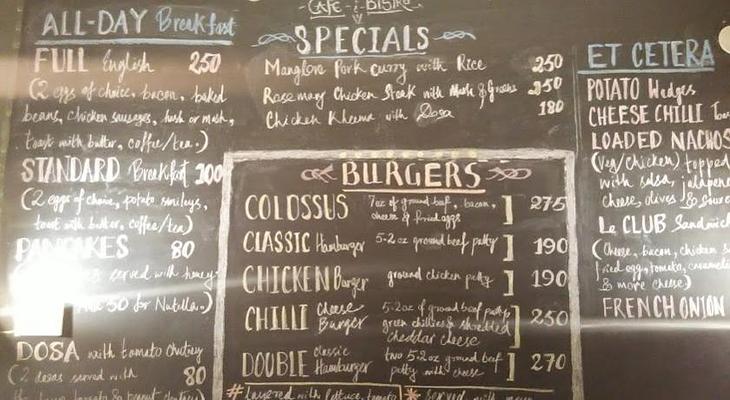 CAFE - BISTRO
ALL-DAY Breakfast
FULL English 250
(2 eggs of choice, bacon, baked
beans, chicken sausages, hash or mash,
toast with butter, coffee/tea.)
STANDARD Breakfast 200
(2 eggs of choice, potato smileys,
toast with butter, coffee/tea)
PANCAKES 80
served with honey
50 for Nutella.)
DOSA with tomato chutney
(2 dosas served with 80
tomato & peanut chutney)
SPECIALS
Manglore Pork curry with Rice 250
Rosemary Chicken Steak with Mash & Greens 250
Chicken Kheema with Dosa 180
BURGERS
COLOSSUS 7oz of ground beef, bacon, cheese & fried eggs ] 275
CLASSIC Hamburger 5-2 oz ground beef patty ] 190
CHICKEN Burger ground chicken patty ] 190
CHILLI Cheese Burger 5-2oz of ground beef patty, green chillies & shredded cheddar cheese ] 250
DOUBLE Classic Hamburger two 5-2oz ground beef patty with cheese ] 270
# layered with lettuce, tomato
* Served with
ET CETERA
POTATO Wedges
CHEESE CHILLI
LOADED NACHOS
(Veg/chicken) topped
with salsa, jalapeno
cheese, olives & Sour
Le CLUB Sandwich
(Cheese, bacon, chicken
fried egg, tomato,
& more cheese)
FRENCH ONION